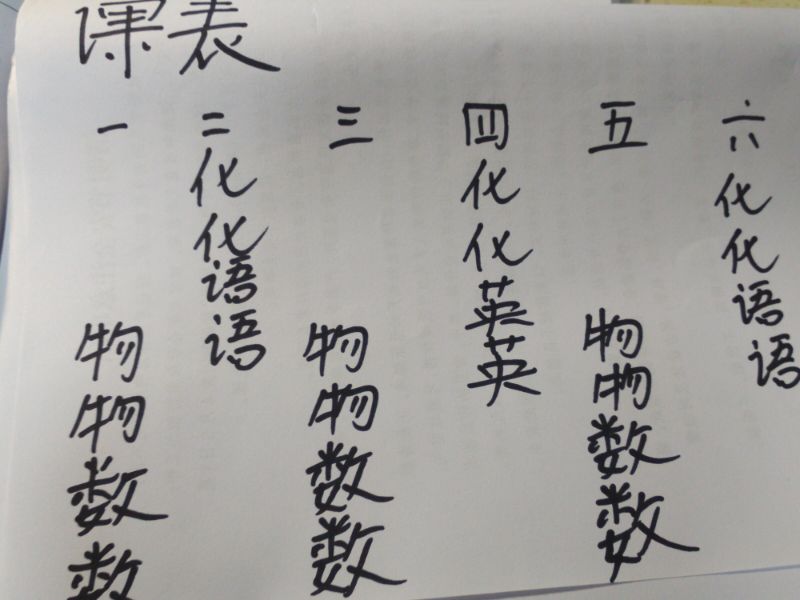 课表
一 二 三 四 五 六
化 化 化
化 化 化
语 英 语
物 语 物 英 物 语
物 物 物
数 数 数
数 数 数